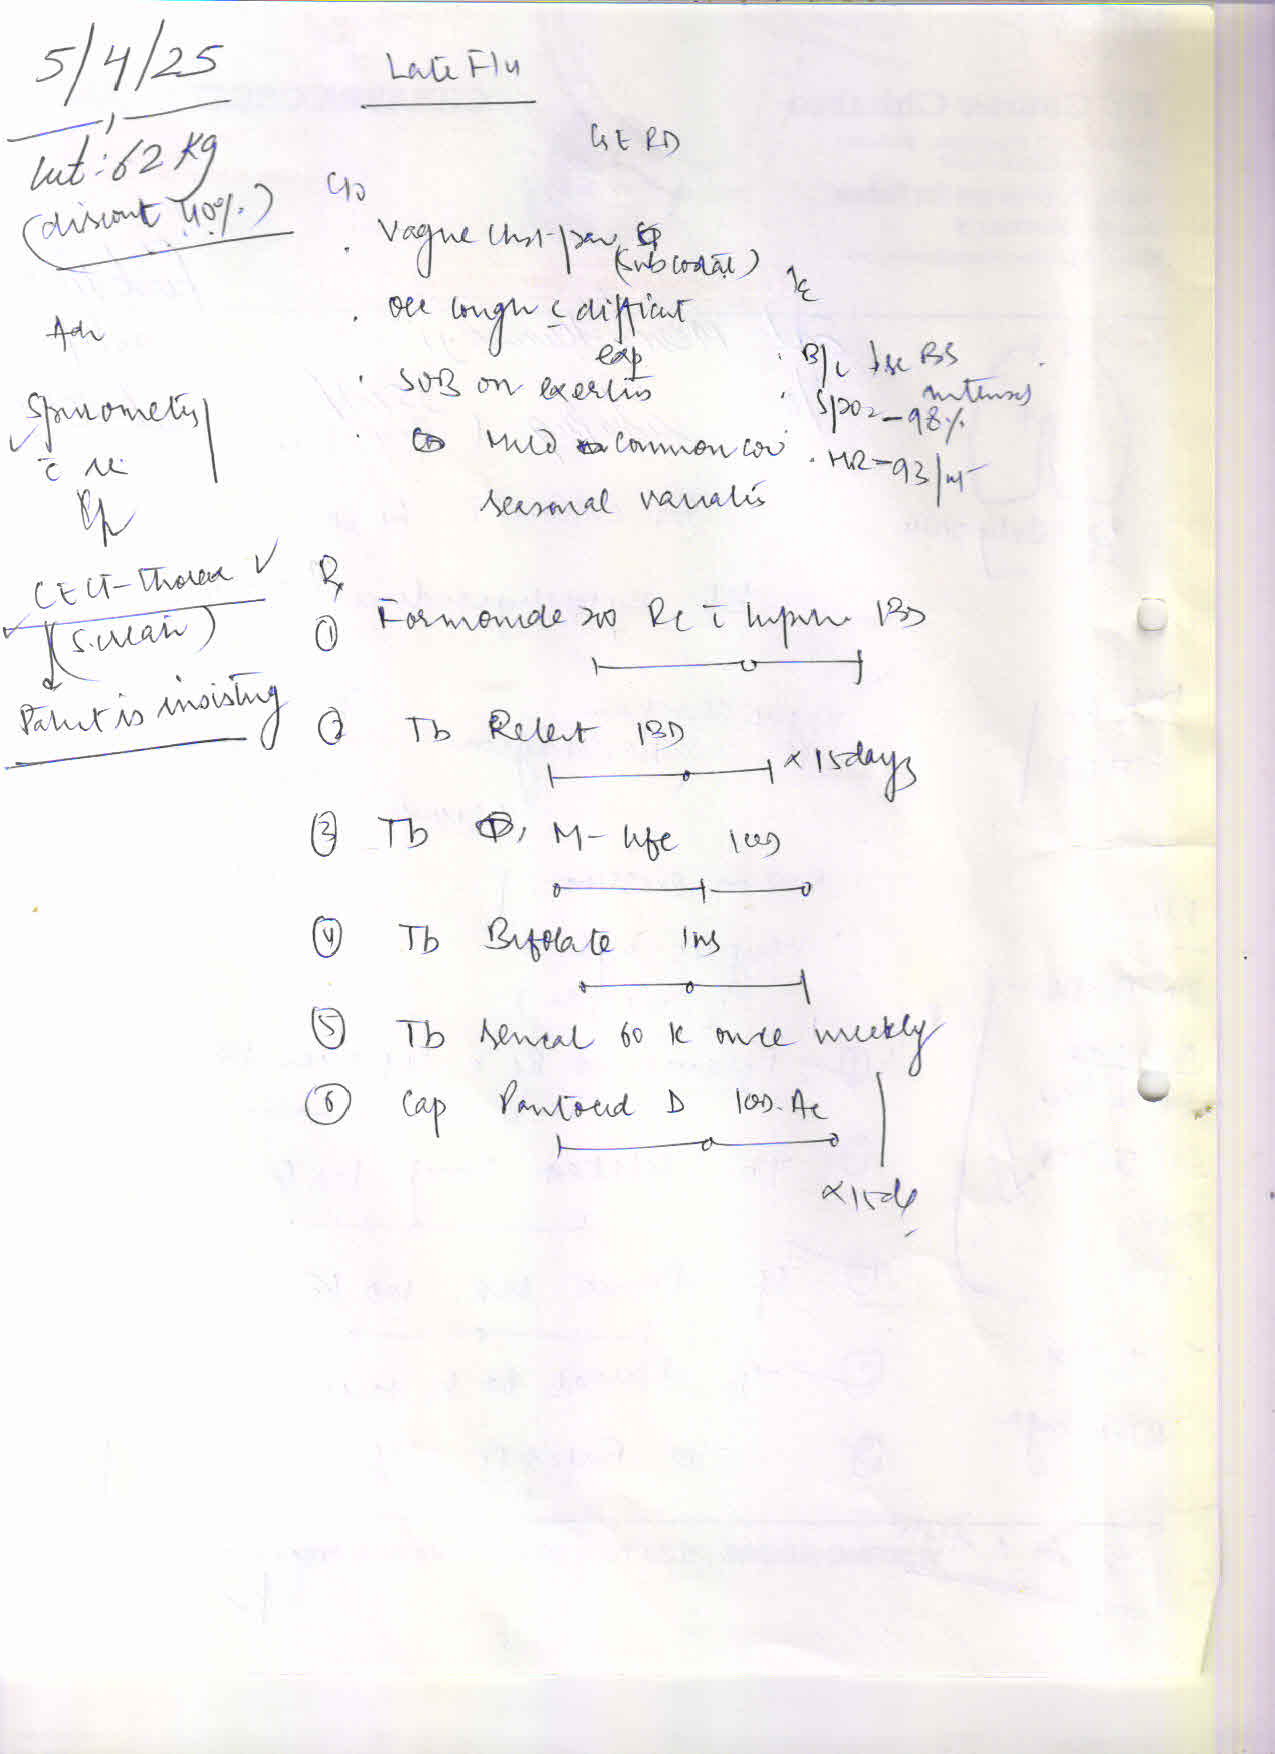 5/4/25
Late Flu
wt: 62 kg
(discount 40%)
GERD
C/o
. Vague chest pain
(subcostal)
. occ cough c difficult
exp
. SOB on exertion
. Mild common cold
seasonal variation
O/E
. B/L BS
intensity
. SpO2 - 98%
. HR - 93/mt
Adv
Spirometry
CECT - Thorax ✓
(Screan)
Patient is insisting
Rx
① Formonide 200 Rc 1 BD
② Tb Relent 1 BD
x 15 days
③ Tb M-life 1 OD
④ Tb Bifolate 1 HS
⑤ Tb Sencal 60 K once weekly
⑥ Cap Pantocid D 1 OD. Ac
x 15 d